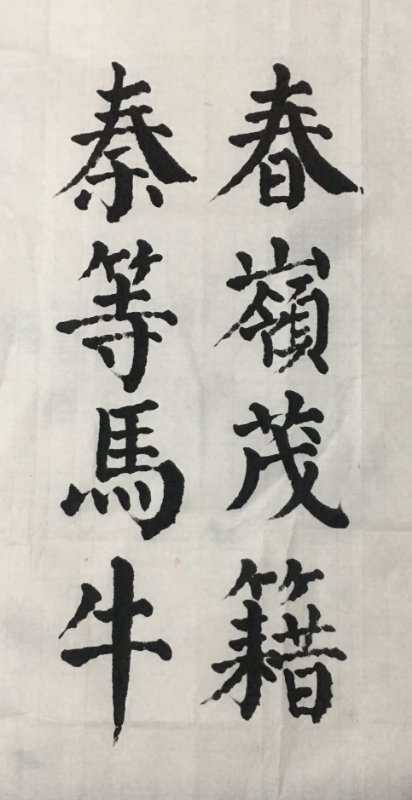 春嶺茂籍
秦等馬牛